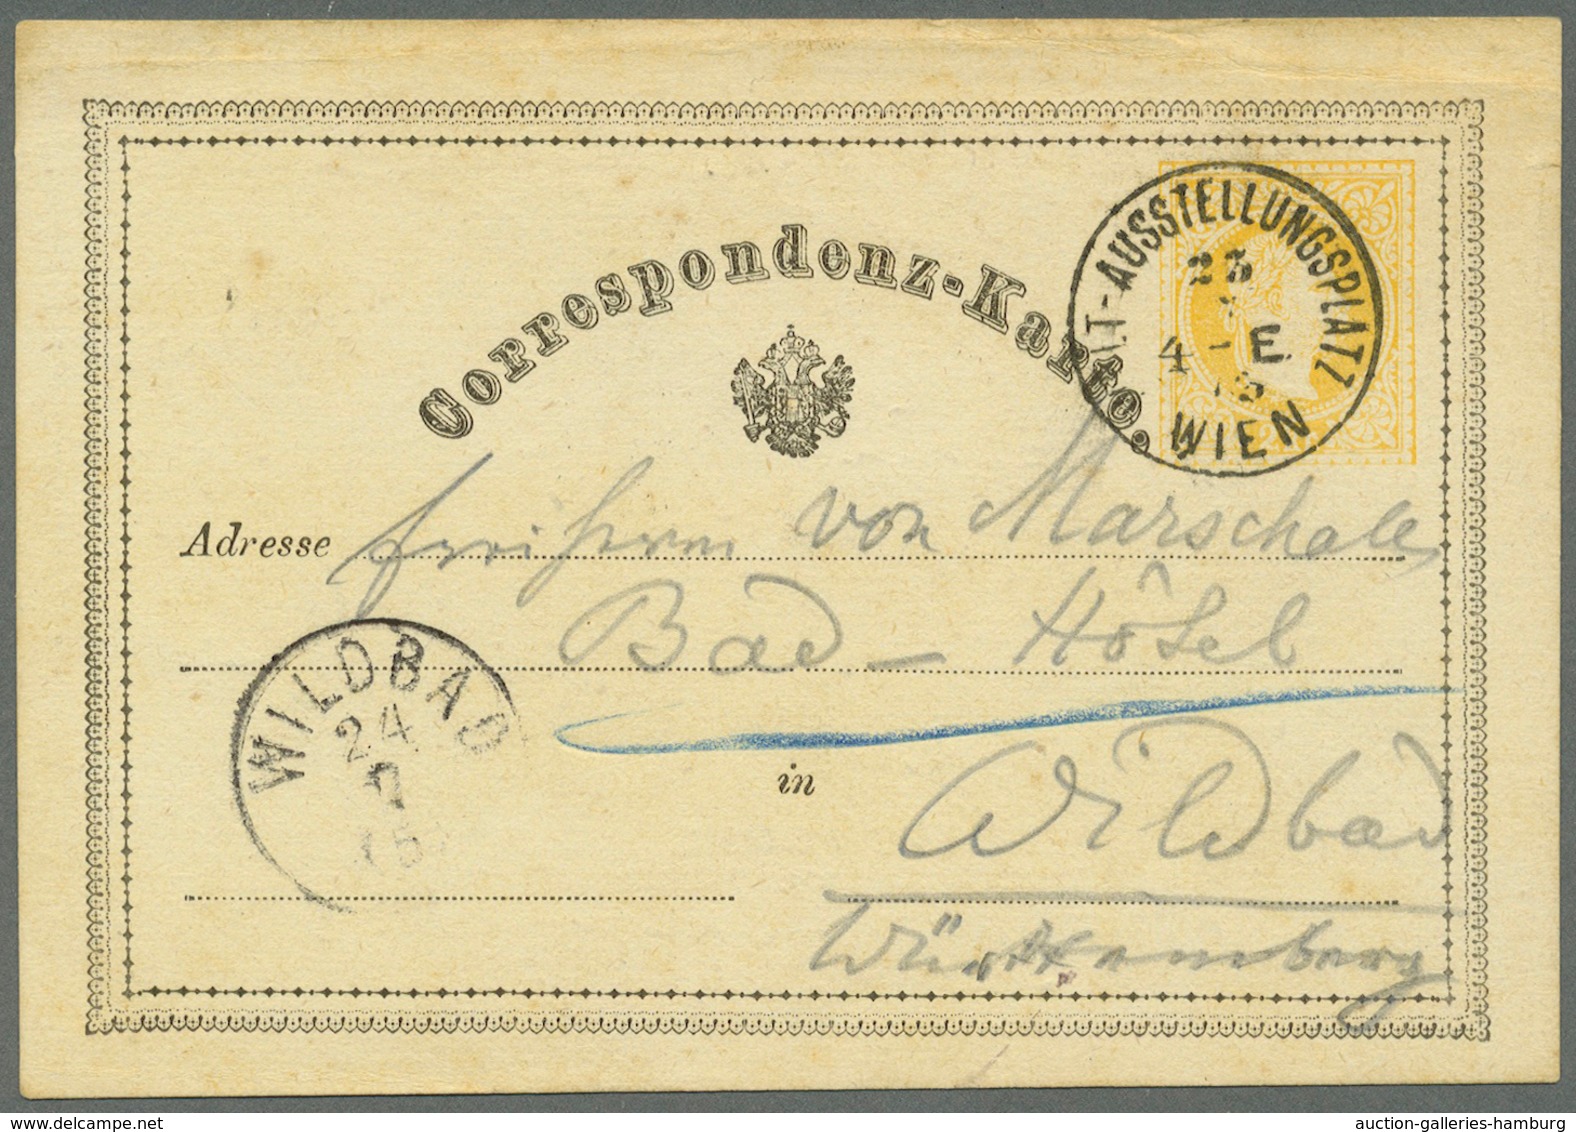 Correspondenz-Karte.
WELT-AUSSTELLUNGSPLATZ
4 - E
WIEN
Adresse Freiherrn von Marschall
Bad - Hôtel
WILDBAD
24
7
in Wildbad
Württemberg
www.delcampe.net
auction-galleries-hamburg